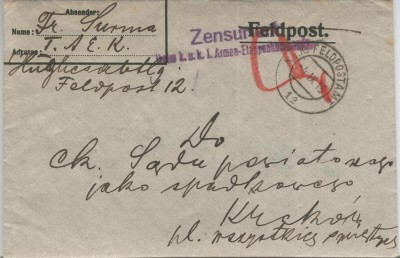 Absender:
Name: Fr. Surma
Adresse: T. A. E. K.
Feldpost 12.
Feldpost.
Zensuriert
beim k. u. k. i. Armee-Etappenkommando
FELDPOSTAMT
12
Do
ck. Sądu powiatowego
jako spadkowego
Kraków
pl. wszystkich